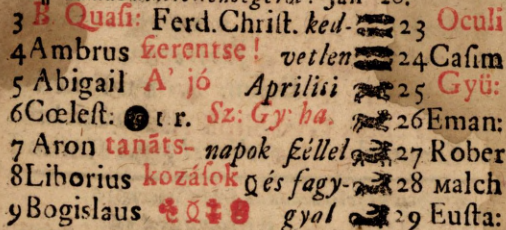 3 B Quasi: Ferd. Christ. ked- 23 Oculi
4 Ambrus szerentse! vetlen 24 Casim
5 Abigail A' jó Aprilisi 25 Gyü:
6 Cœlest: 1 r. Sz: Gy: ha. 26 Eman:
7 Aron tanāts- napok széllel 27 Rober
8 Liborius kozások és fagy- 28 Malch
9 Bogislaus gyal 29 Eusta: